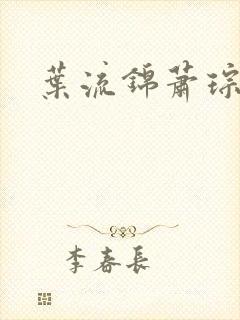 葉流錦蕭琮
李春長